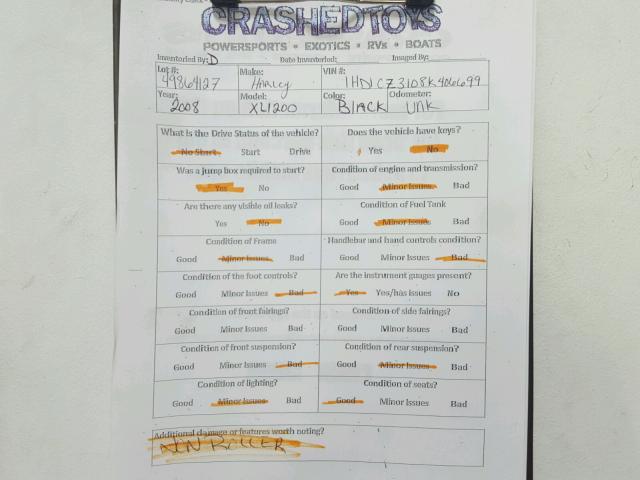 CRASHEDTOYS
POWERSPORTS • EXOTICS • RVs • BOATS
Inventoried By: D Date Inventoried: Imaged By:
Lot #: Make: VIN #:
49864127 Harley 1HD1CZ3108K406699
Year: Model: Color: Odometer:
2008 XL1200 BlACK UNK
What is the Drive Status of the vehicle? Does the vehicle have keys?
No Start Start Drive Yes No
Was a jump box required to start? Condition of engine and transmission?
Yes No Good Minor Issues Bad
Are there any visible oil leaks? Condition of Fuel Tank
Yes No Good Minor Issues Bad
Condition of Frame Handlebar and hand controls condition?
Good Minor Issues Bad Good Minor Issues Bad
Condition of the foot controls? Are the instrument guages present?
Good Minor Issues Bad Yes Yes/has issues No
Condition of front fairings? Condition of side fairings?
Good Minor Issues Bad Good Minor Issues Bad
Condition of front suspension? Condition of rear suspension?
Good Minor Issues Bad Good Minor Issues Bad
Condition of lighting? Condition of seats?
Good Minor Issues Bad Good Minor Issues Bad
Additional damage or features worth noting?
ROLLER